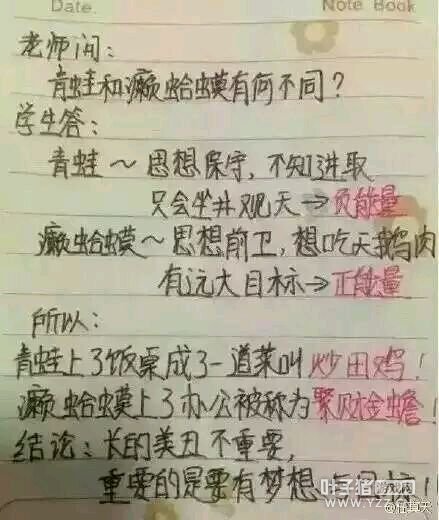 Date.
Note Book
老师问:
青蛙和癞蛤蟆有何不同?
学生答:
青蛙~思想保守,不知进取
只会坐井观天→负能量
癞蛤蟆~思想前卫,想吃天鹅肉
有远大目标→正能量
所以:
青蛙上了饭桌成了一道菜叫炒田鸡!
癞蛤蟆上了办公被称为聚财金蟾!
结论:长的美丑不重要,
重要的是要有梦想
叶子猪 游戏网
www.YZZ.cn